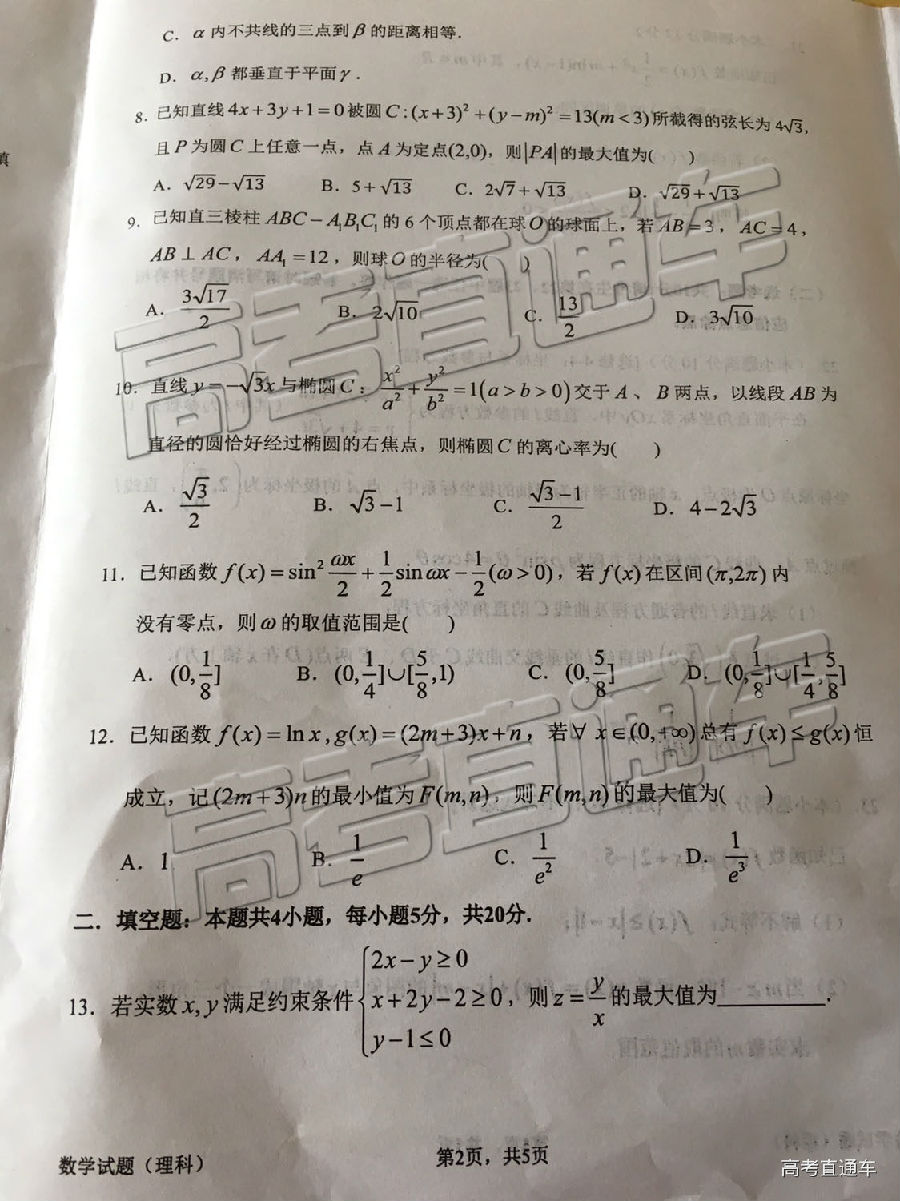 C. α 内不共线的三点到 β 的距离相等.
D. α,β 都垂直于平面 γ .
8. 已知直线 4x+3y+1=0 被圆 C:(x+3)²+(y-m)²=13(m<3) 所截得的弦长为 4√3,
且 P 为圆 C 上任意一点，点 A 为定点(2,0)，则|PA|的最大值为( )
A. √29-√13 B. 5+√13 C. 2√7+√13 D. √29+√13
9. 已知直三棱柱 ABC-A₁B₁C₁ 的 6 个顶点都在球 O 的球面上，若 AB=3，AC=4，
AB⊥AC，AA₁=12，则球 O 的半径为( )
A. 3√17/2 B. 2√10 C. 13/2 D. 3√10
10. 直线 y=-√3x 与椭圆 C：x²/a²+y²/b²=1(a>b>0)交于 A 、 B 两点，以线段 AB 为
直径的圆恰好经过椭圆的右焦点，则椭圆 C 的离心率为( )
A. √3/2 B. √3-1 C. (√3-1)/2 D. 4-2√3
11. 已知函数 f(x)=sin²(ωx/2)+1/2sinωx-1/2(ω>0)，若 f(x) 在区间(π,2π)内
没有零点，则 ω 的取值范围是( )
A. (0,1/8] B. (0,1/4]∪[5/8,1) C. (0,5/8] D. (0,1/8]∪[1/4,5/8]
12. 已知函数 f(x)=lnx,g(x)=(2m+3)x+n，若∀ x∈(0,+∞)总有 f(x)≤g(x)恒
成立，记(2m+3)n的最小值为F(m,n)，则F(m,n)的最大值为( )
A. 1 B. 1/e C. 1/e² D. 1/e³
二．填空题：本题共4小题，每小题5分，共20分.
13. 若实数 x,y 满足约束条件{2x-y≥0 x+2y-2≥0 y-1≤0，则z=y/x的最大值为________.
数学试题（理科） 第2页，共5页
高考直通车
高考直通车
高考直通车
填